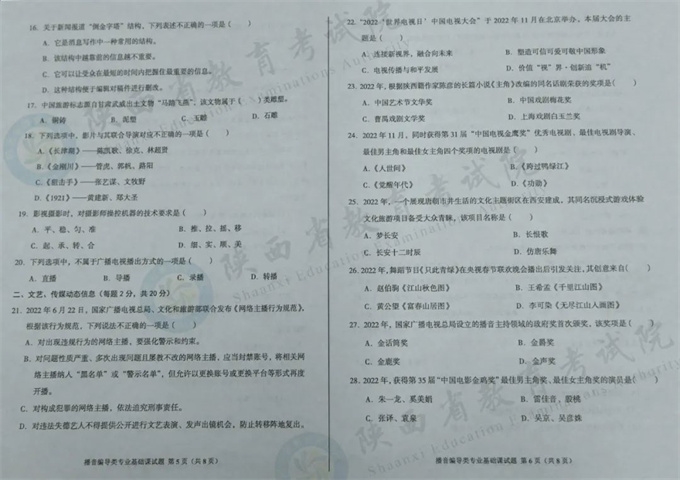 16. 关于新闻报道“倒金字塔”结构，下列表述不正确的一项是（　　）
A. 它是消息写作中一种常用的结构。
B. 该结构中越靠前的信息越不重要。
C. 它可以让受众在最短的时间内把握住最重要的信息。
D. 这种结构便于编辑对稿件进行删节。
17. 中国旅游标志源自甘肃武威出土文物“马踏飞燕”，该文物属于（　　）类雕塑。
A. 铜铸　B. 泥塑　C. 玉雕　D. 石雕
18. 下列选项中，影片与其联合导演对应不正确的一项是（　　）
A.《长津湖》——陈凯歌、徐克、林超贤
B.《金刚川》——管虎、郭帆、路阳
C.《狙击手》——张艺谋、文牧野
D.《1921》——黄建新、郑大圣
19. 影视摄影时，对摄影师操控机器的技术要求是（　　）
A. 平、稳、匀、准　B. 推、拉、摇、移
C. 起、承、转、合　D. 细、实、顺、美
20. 下列选项中，不属于广播电视播出方式的一项是（　　）
A. 直播　B. 导播　C. 录播　D. 转播
二、文艺、传媒动态信息（每题 2 分，共 20 分）
21. 2022 年 6 月 22 日，国家广播电视总局、文化和旅游部联合发布《网络主播行为规范》，
根据该行为规范，下列说法不正确的一项是（　　）
A. 对出现违规行为的网络主播，要强化警示和约束。
B. 对问题性质严重、多次出现问题且屡教不改的网络主播，应当封禁账号，将相关网
络主播纳入“黑名单”或“警示名单”，但允许以更换账号或更换平台等形式再度
开播。
C. 对构成犯罪的网络主播，依法追究刑事责任。
D. 对违法失德艺人不得提供公开进行文艺表演、发声出镜机会，防止转移阵地复出。
播音编导类专业基础课试题 第 5 页（共 8 页）
22. “2022‘世界电视日’中国电视大会”于 2022 年 11 月在北京举办。本届大会的主
题是（　　）
A. 连接新视界，融合向未来　B. 塑造可信可爱可敬中国形象
C. 电视传播与和平发展　D. 价值“视”界·创新追“机”
23. 2022 年，根据陕西籍作家陈彦的长篇小说《主角》改编的同名话剧荣获的奖项是（　　）
A. 中国艺术节文华奖　B. 中国戏剧梅花奖
C. 中国戏剧文学奖　D. 上海戏剧白玉兰奖
24. 2022 年 11 月，同时获得第 31 届“中国电视金鹰奖”优秀电视剧、最佳电视剧导演、
最佳男主角和最佳女主角四个奖项的电视剧是（　　）
A.《人世间》　B.《跨过鸭绿江》
C.《觉醒年代》　D.《功勋》
25. 2022 年，一个展现唐朝市井生活的文化主题街区在西安建成，其同名沉浸式游戏体验
文化旅游项目备受大众青睐，该项目名称是（　　）
A. 梦长安　B. 长恨歌
C. 长安十二时辰　D. 仿唐乐舞
26. 2022 年，舞蹈节目《只此青绿》在央视春节联欢晚会播出后引发关注，其创意来自（　　）
A. 赵伯驹《江山秋色图》　B. 王希孟《千里江山图》
C. 黄公望《富春山居图》　D. 李可染《无尽江山入画图》
27. 2022 年，国家广播电视总局设立的播音主持领域的政府奖首次颁奖，该奖项是（　　）
A. 金话筒奖　B. 金爵奖
C. 金鹿奖　D. 金声奖
28. 2022 年，获得第 35 届“中国电影金鸡奖”最佳男主角奖、最佳女主角奖的演员是（　　）
A. 朱一龙、奚美娟　B. 雷佳音、殷桃
C. 张译、袁泉　D. 吴京、吴彦姝
播音编导类专业基础课试题 第 6 页（共 8 页）
陕西省教育考试院
Shaanxi Education Examinations Authority